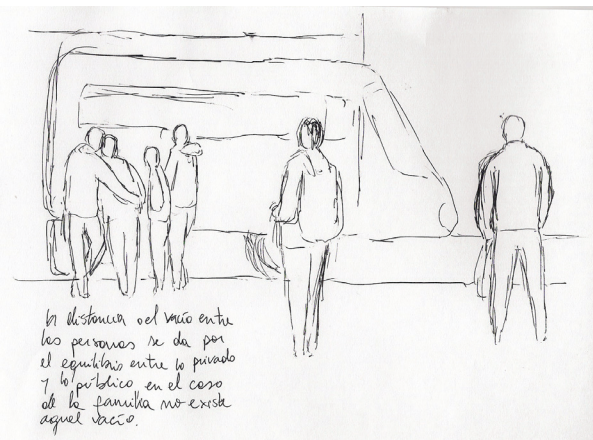 la distancia o el vacío entre
las personas se da por
el equilibrio entre lo privado
y lo público en el caso
de la familia no existe
aquel vacío.